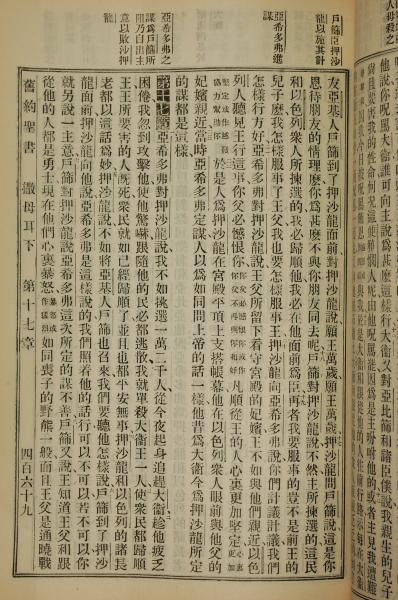 他說你呪罵大衛誰可向主說爲甚麼這樣行大衛又對亞比篩和諸臣僕說我親生的兒子
戶篩臣押沙龍以施其計
亞希多弗進謀
亞希多弗之謀爲戶篩所阻乃自出主意以敗沙押龍
友亞基人戶篩到了押沙龍面前對押沙龍說願王萬歲願王萬歲押沙龍問戶篩說這是你
恩待朋友的情理麼你爲甚麼不與你朋友同去呢戶篩對押沙龍說不然主所揀選的這民
和以色列衆人所揀選的我必歸順他我必在他面前爲臣再者我要服事的豈不是前王的
兒子麼我怎樣服事了王父我也要怎樣服事王押沙龍向亞希多弗說你們計議計議我們
怎樣行方好亞希多弗對押沙龍說王父所留下看守宮殿的妃嬪王不如與他們親近以色
列人聽見王行這事你父必憾恨你凡順從王的人心裏更加堅定
於是人爲押沙龍在宮殿平頂上支搭帳幕他在以色列衆人眼前與他父的
妃嬪親近當時亞希多弗定謀人以爲如同問上帝的話一樣他昔爲大衛今爲押沙龍所定
的謀都是這樣
第十七章亞希多弗對押沙龍說我不如挑選一萬二千人從今夜起身追趕大衛趁他疲乏
困倦我忽到攻擊他使他驚嚇跟隨他的民必都逃散我就單殺大衛王一人使衆民都歸順
王王所要害的人既死衆民就如已經歸順了並且也都平安無事押沙龍和以色列的諸長
老都以這話爲妙押沙龍說不如將亞基人戶篩也召來我們要聽他怎樣說戶篩到了押沙
龍面前押沙龍向他說亞希多弗是這樣說的我們照着他的話行可以不可以若不可以你
就另說一主意戶篩對押沙龍說亞希多弗這次所定的謀不善戶篩又說王知道王父和跟
從他的人都是勇士現在他們心裏暴怒如同喪子的野熊一般而且王父是通曉戰
舊約聖書 撒母耳下 第十七章 四百六十九